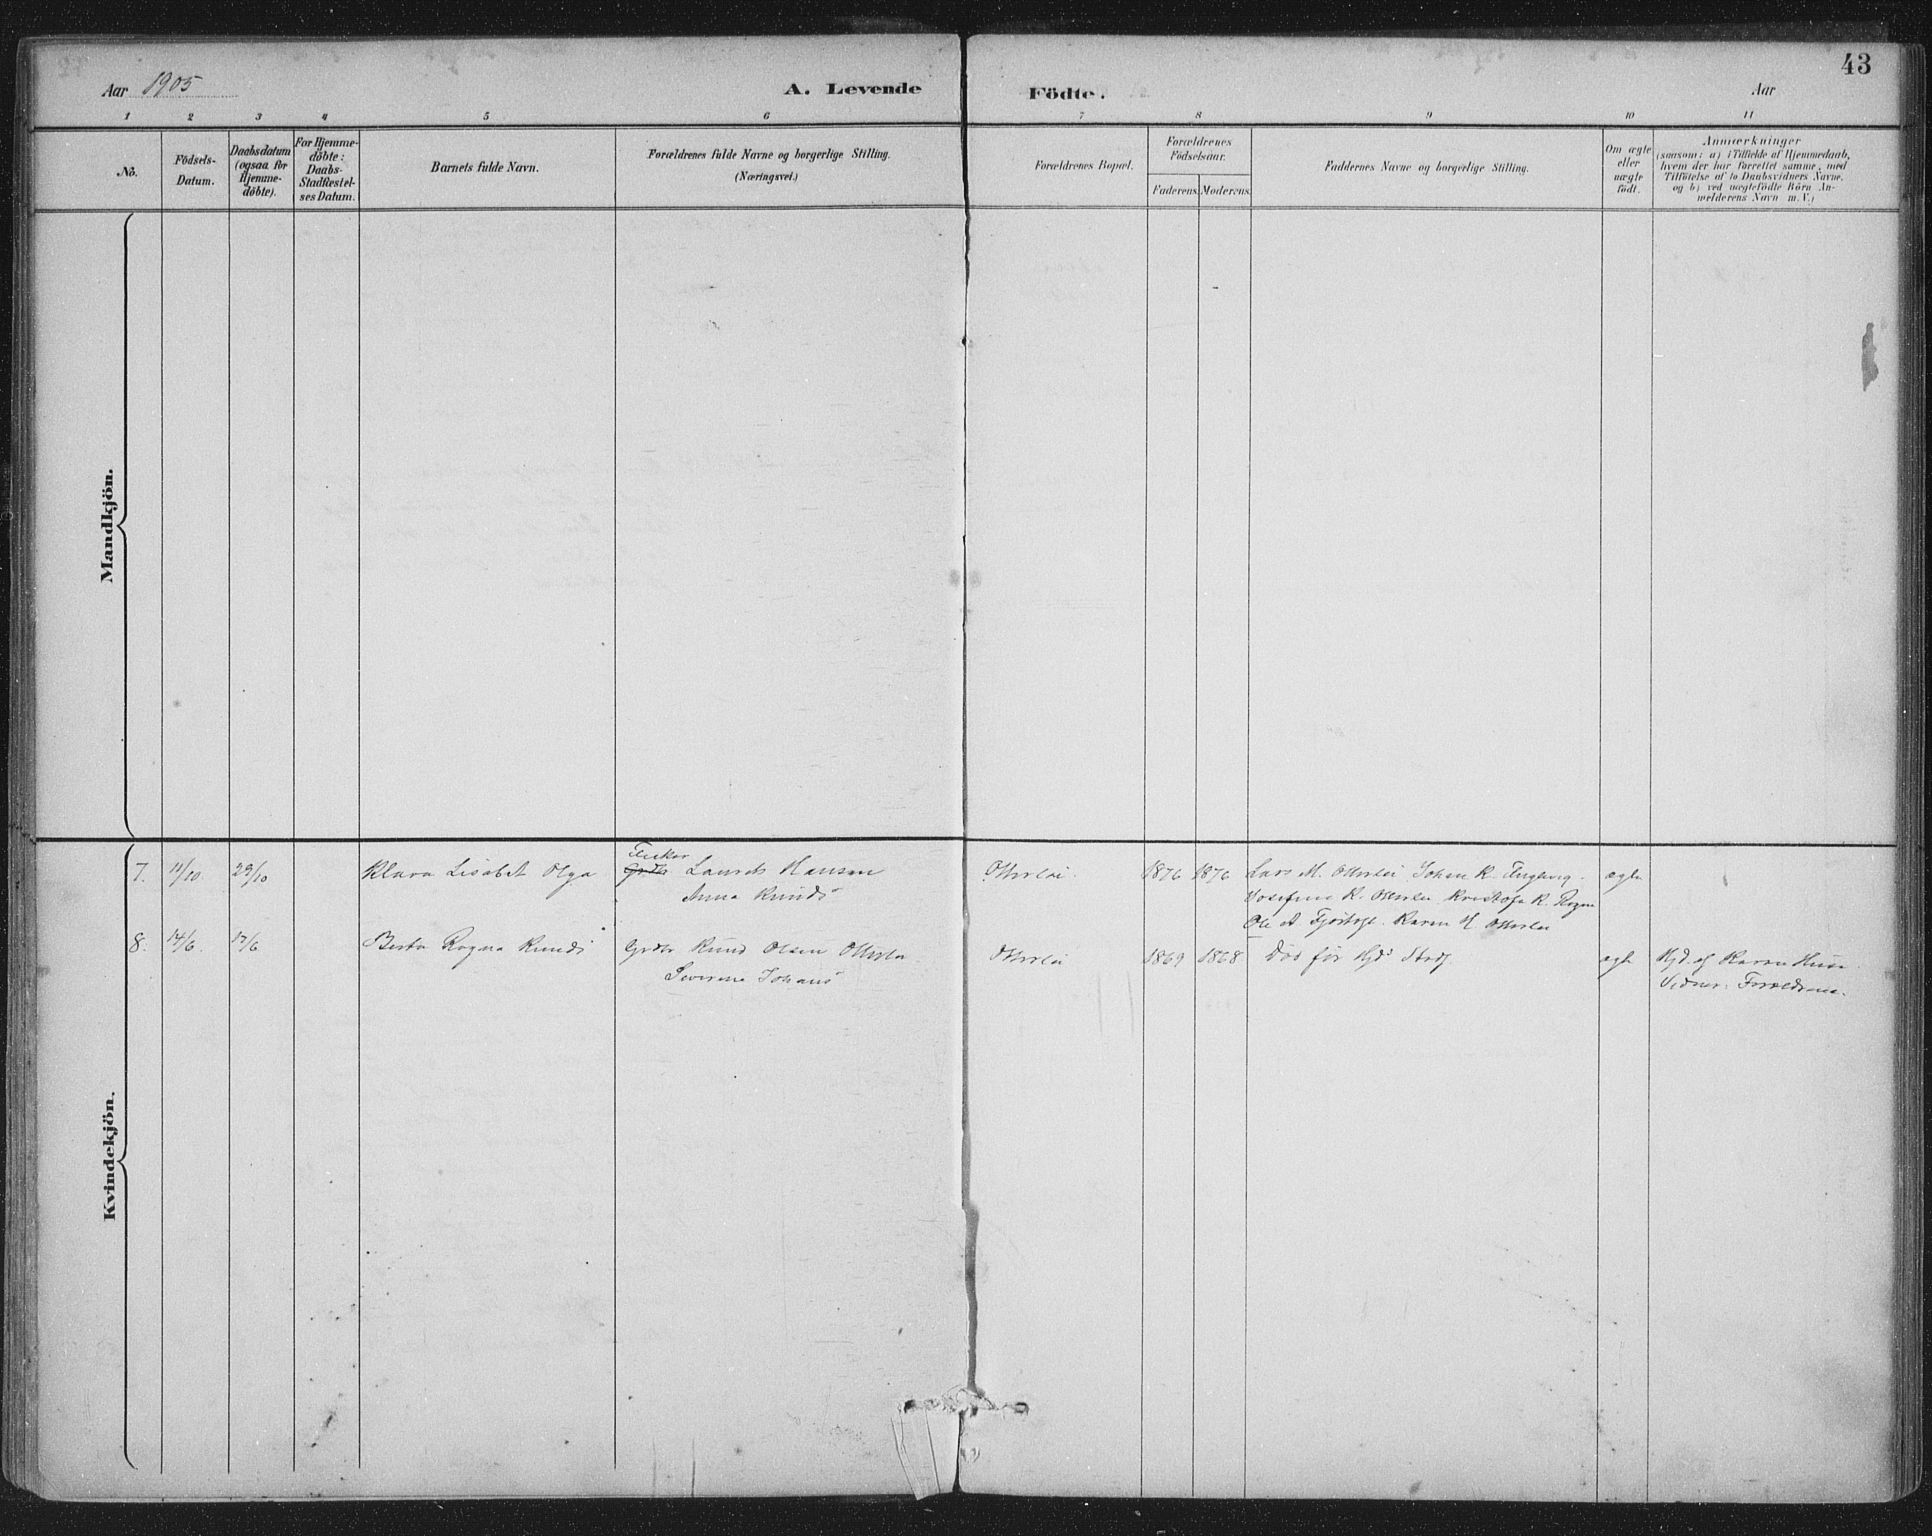 43
Aar 1905
A. Levende
Födte.
Aar
1 2 3 4 5 6 7 8 9 10 11
No.
Födsels-
Datum.
Daabsdatum
(ogsaa for
Hjemme-
döbte).
For Hjemme-
döbte:
Daabs-
Stadfestel-
ses Datum.
Barnets fulde Navn.
Forældrenes fulde Navne og borgerlige Stilling.
(Næringsvei.)
Forældrenes Bopæl.
Forældrenes
Födselsaar.
Faderens. Moderens.
Faddernes Navne og borgerlige Stilling.
Om ægte
eller
uægte
født.
Anmærkninger
(saasom: a) i Tilfælde af Hjemmedaab,
hvem der har forrettet samme, med
Tilföielse af to Daabsvidners Navne,
og b) ved uægtefödte Börn An-
melderens Navn m. V.)
Mandkjön.
Kvindekjön.
7. 11/10 29/10 Klara Lisabet Olga
Fisker
Grdbr Laurits Hansen
Anna Knuds
Otterlei. 1876 1876
Lars M. Otterlei Johan K.
Josefine K. Otterlei
Ole A. Fjörtoft. Karen H. Otterlei
ægte
8. 14/6. 17/6 Berta Ragna Knuds
Grdbr Knud Olsen Otterlei
Severine Johans
Otterlei 1869 1868 Död før Hjd Stadf.
ægte
Hjd. af Karen Huse
Vidner: Forældrene.